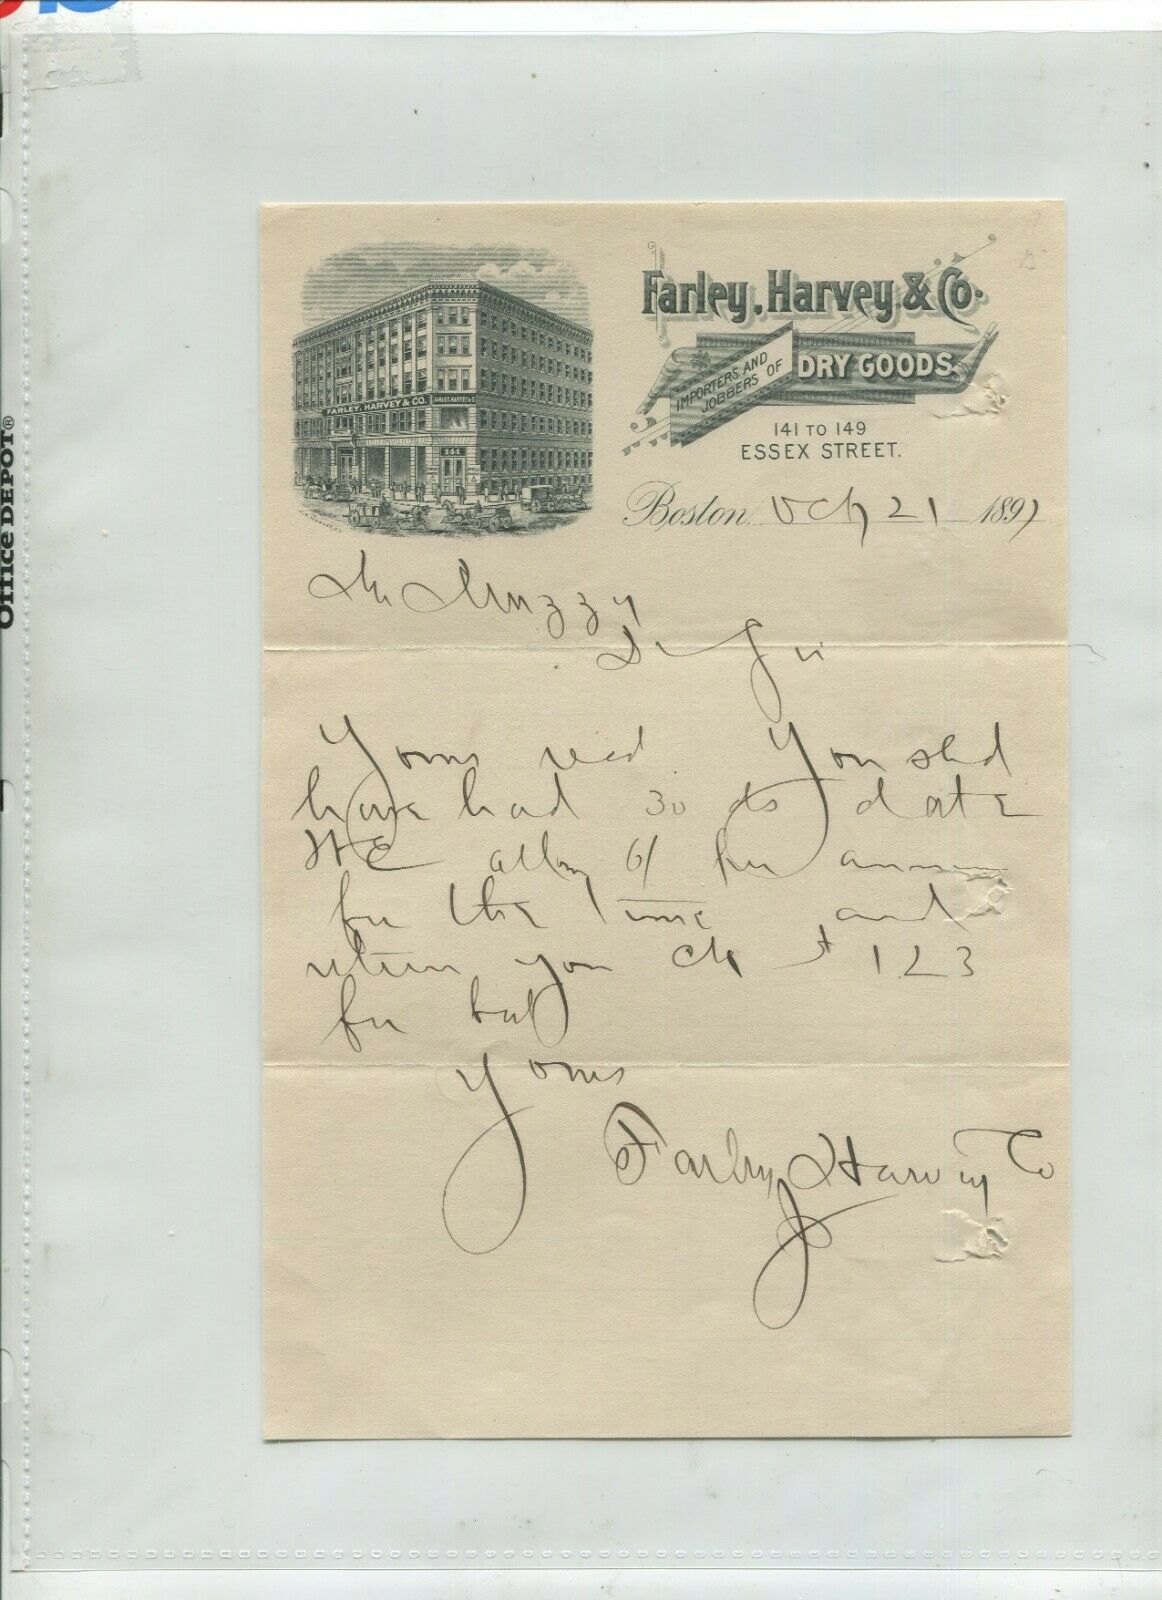 Office DEPOT®
FARLEY, HARVEY & CO.
FARLEY, HARVEY & C
141
Farley, Harvey & Co.
IMPORTERS AND
JOBBERS OF
DRY GOODS.
141 TO 149
ESSEX STREET.
Boston Oct 21 1897
Mr Muzzy
Dr Sir
Yours recd. You shd
have had 30 ds date
We allow 6/ per annum
for the time and
return you ck $ 1.23
for bal
Yours
Farley Harvey Co